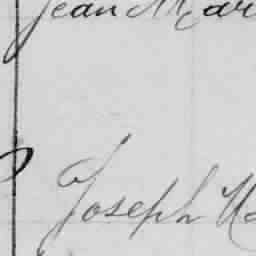 Jean Mar
Joseph